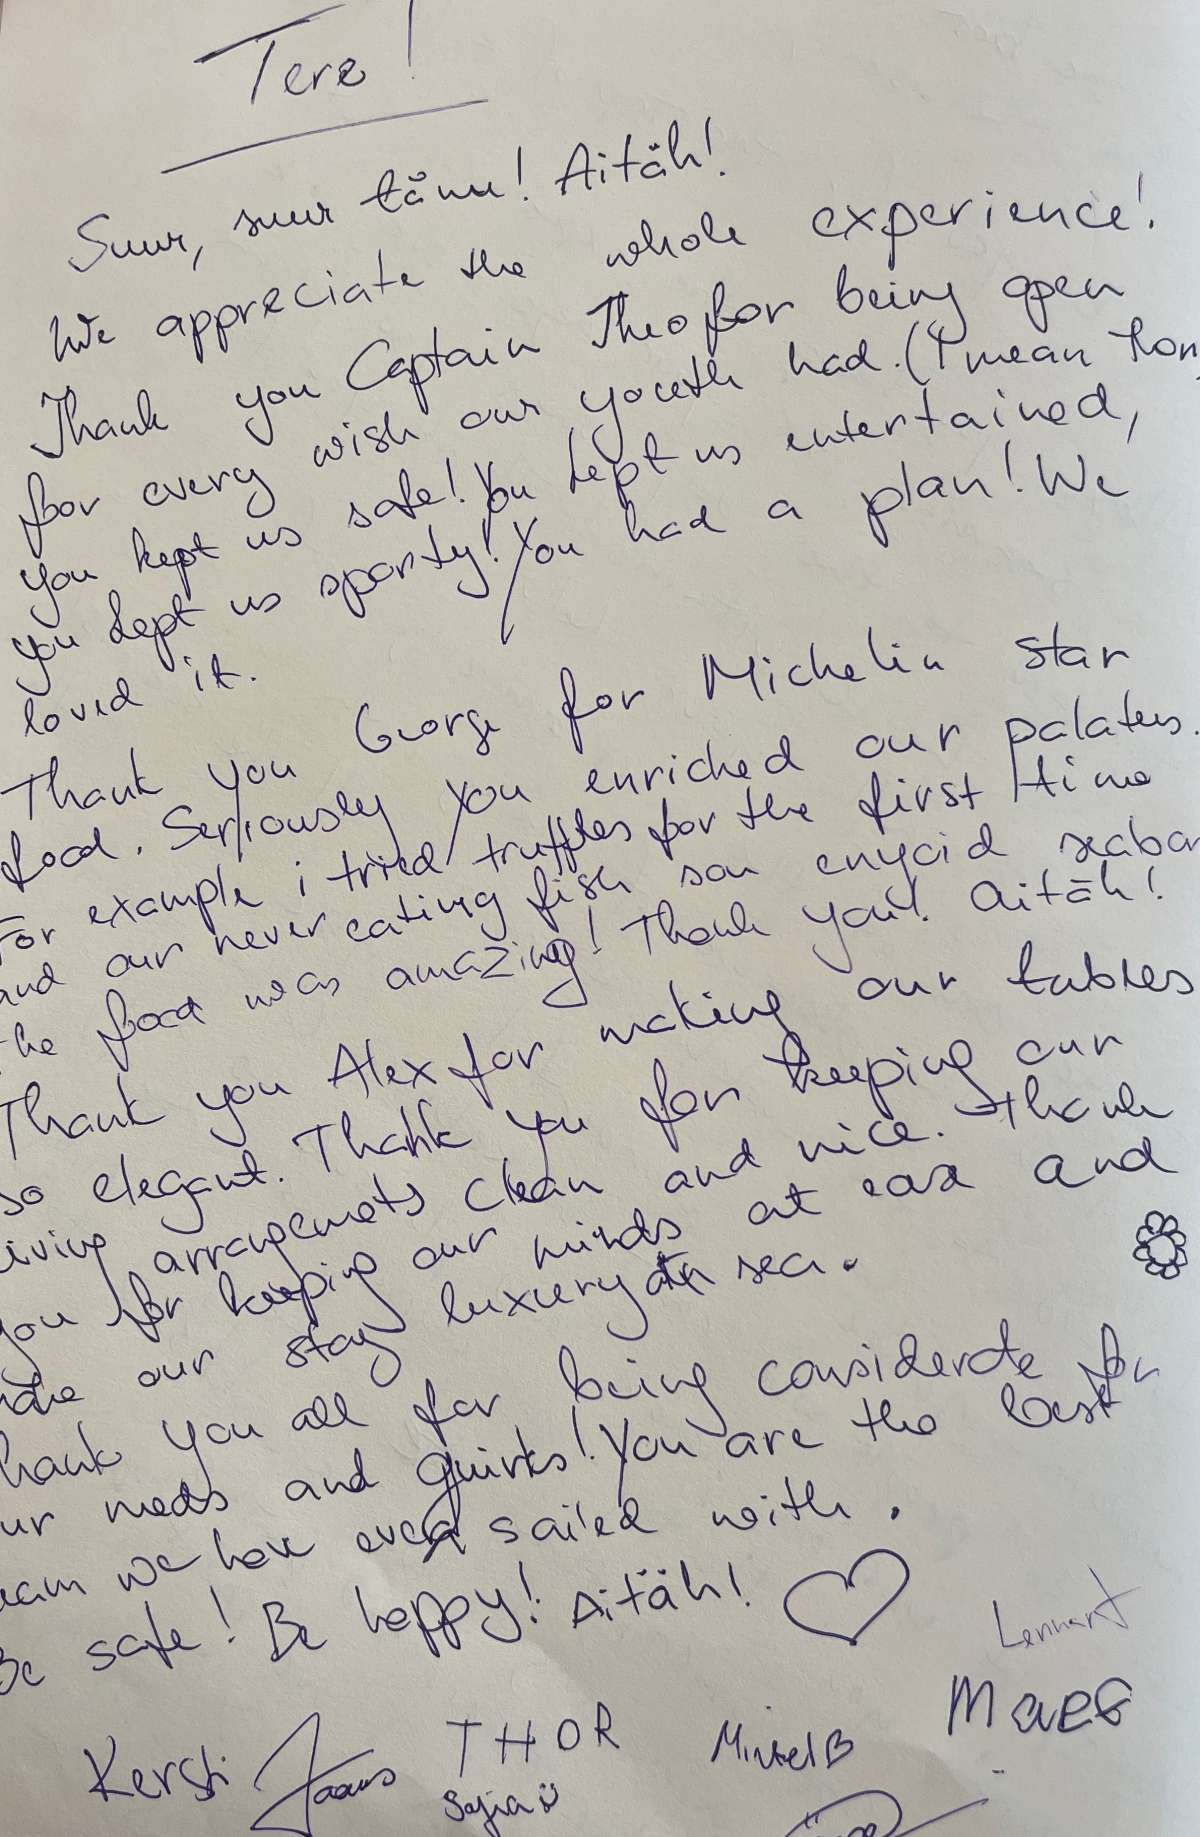 Tere!
Suur, suur tänu! Aitäh!
We appreciate the whole experience!
Thank you Captain Theo for being open
for every wish our youth had. (I mean
you kept us safe! You kept us entertained,
you kept us sporty! You had a plan! We
loved it.
Thank you George for Michelin star
food. Seriously you enriched our
For example i tried truffles for the first time
and our never eating fish son
the food was amazing! Thank you! Aitäh!
Thank you Alex for making our tables
so elegant. Thank you for keeping our
living arrangemets clean and nice. Thank
you for keeping our minds at ease and
our stay luxury sea.
hank you all for being considerate for
ur needs and quirks! You are the best
eam we have ever sailed with.
Be safe! Be happy! Aitäh!
Lennart
Kersti Jaans THOR Mirtel B
Sofia